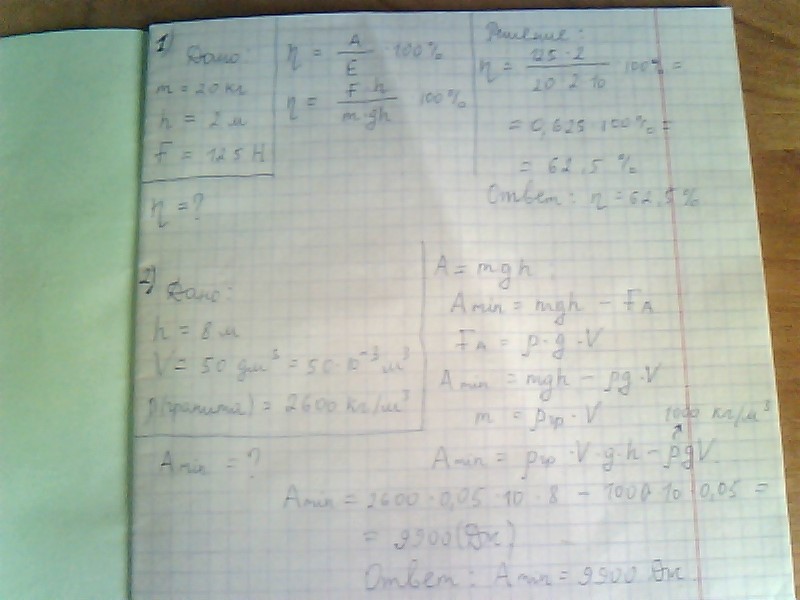 1)
Дано:
m = 20 кг
h = 2 м
F = 125 Н
η = ?
η = A / E · 100%
η = F · h / m · gh 100%
Решение:
η = 125 · 2 / 20 · 2 · 10 · 100% =
= 0,625 · 100% =
= 62,5 %
Ответ: η = 62,5 %
2)
Дано:
h = 8 м
V = 50 дм³ = 50 · 10⁻³ м³
ρ(гранита) = 2600 кг/м³
Amin = ?
A = mgh
Amin = mgh − FA
FA = ρ · g · V
Amin = mgh − ρg · V
m = ρгр · V
1000 кг/м³
Amin = ρгр · V · g · h − ρgV
Amin = 2600 · 0,05 · 10 · 8 − 1000 · 10 · 0,05 =
= 9900 (Дж)
Ответ: Amin = 9900 Дж